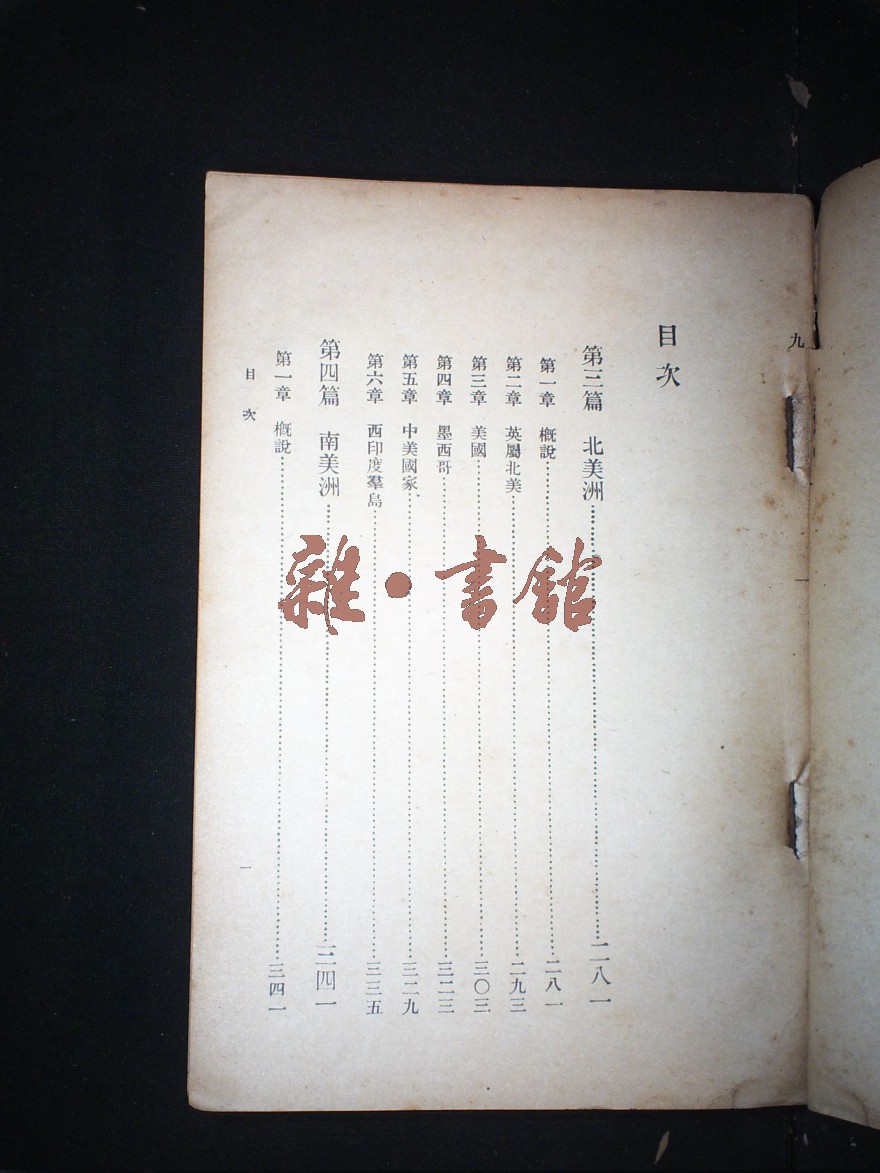 九
目次
第三篇 北美洲……二八一
第一章 概說……二八一
第二章 英屬北美……二九三
第三章 美國……三〇三
第四章 墨西哥……三二三
第五章 中美國家……三二九
第六章 西印度羣島……三三五
第四篇 南美洲……三四一
第一章 概說……三四一
目次 一
雜·書館